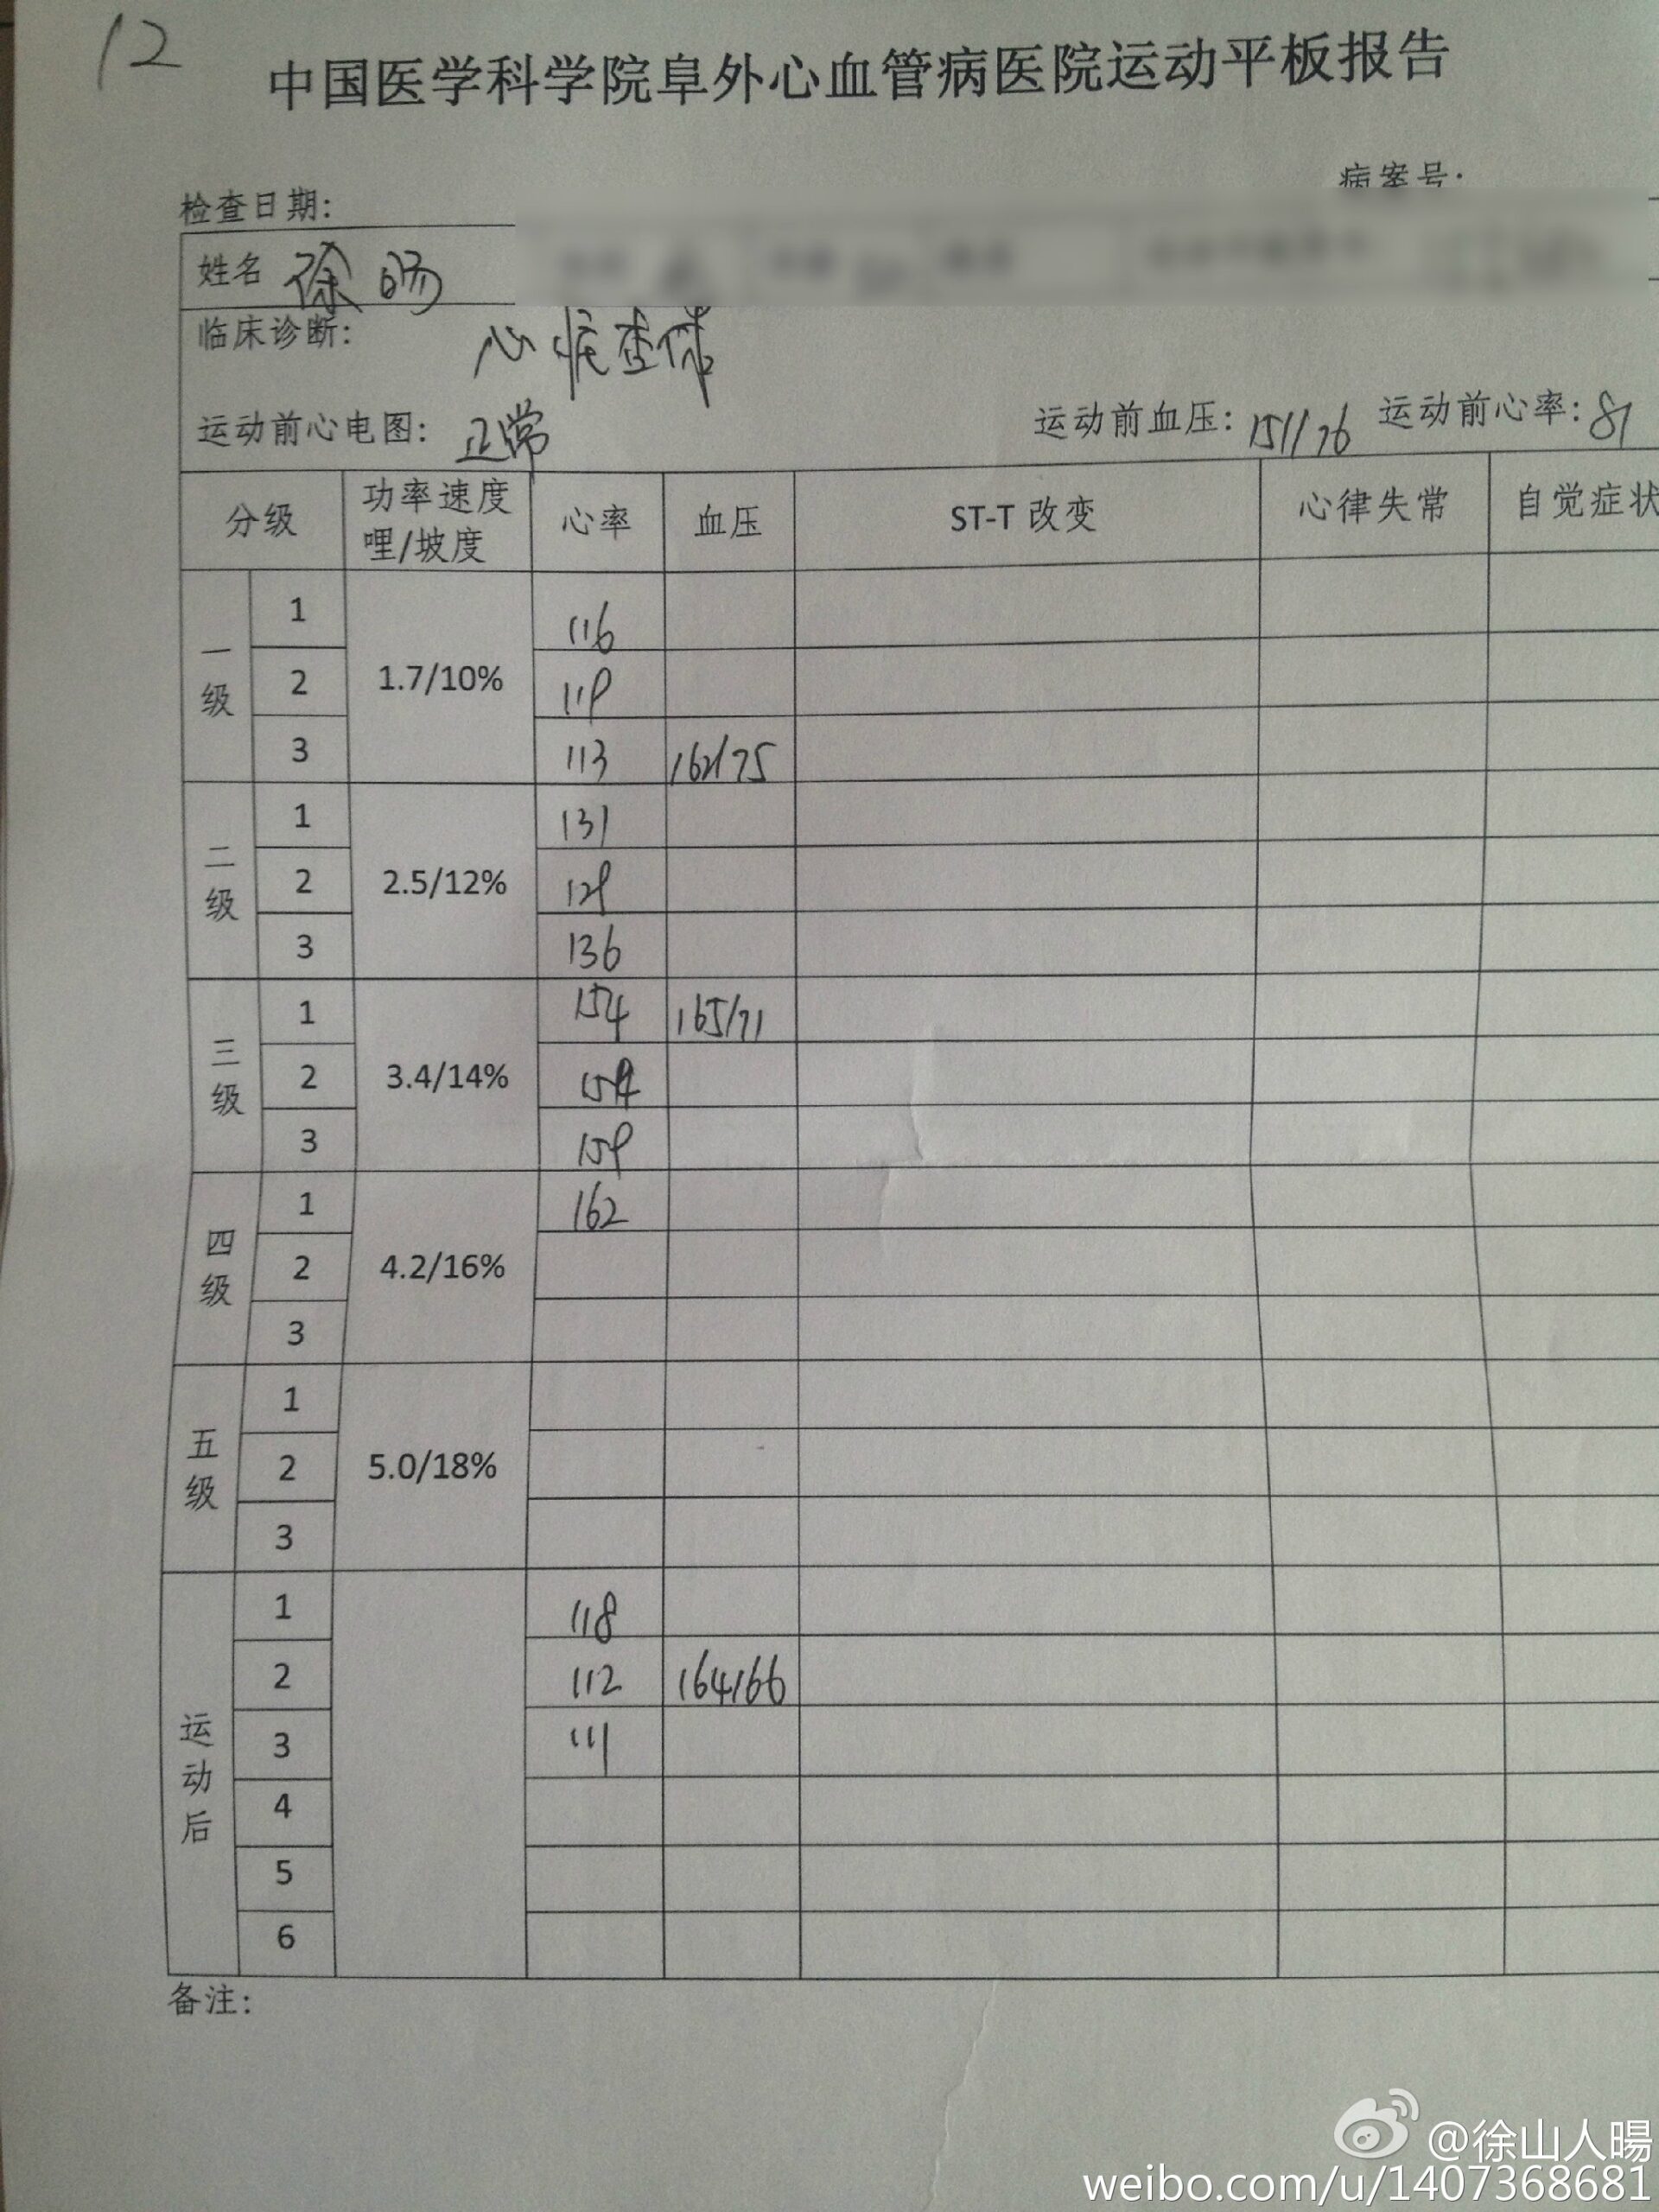 12
中国医学科学院阜外心血管病医院运动平板报告
病案号:
检查日期:
姓名 徐旸
临床诊断: 心疾查体
运动前心电图: 正常 运动前血压: 151/76 运动前心率: 81
分级 功率速度 哩/坡度 心率 血压 ST-T 改变 心律失常 自觉症状
一级 1.7/10%
1 116
2 119
3 113 162/75
二级 2.5/12%
1 131
2 129
3 136
三级 3.4/14%
1 154 165/71
2
3 159
四级 4.2/16%
1 162
2
3
五级 5.0/18%
1
2
3
运动后
1 118
2 112 164/66
3 111
4
5
6
备注:
@徐山人暘
weibo.com/u/1407368681